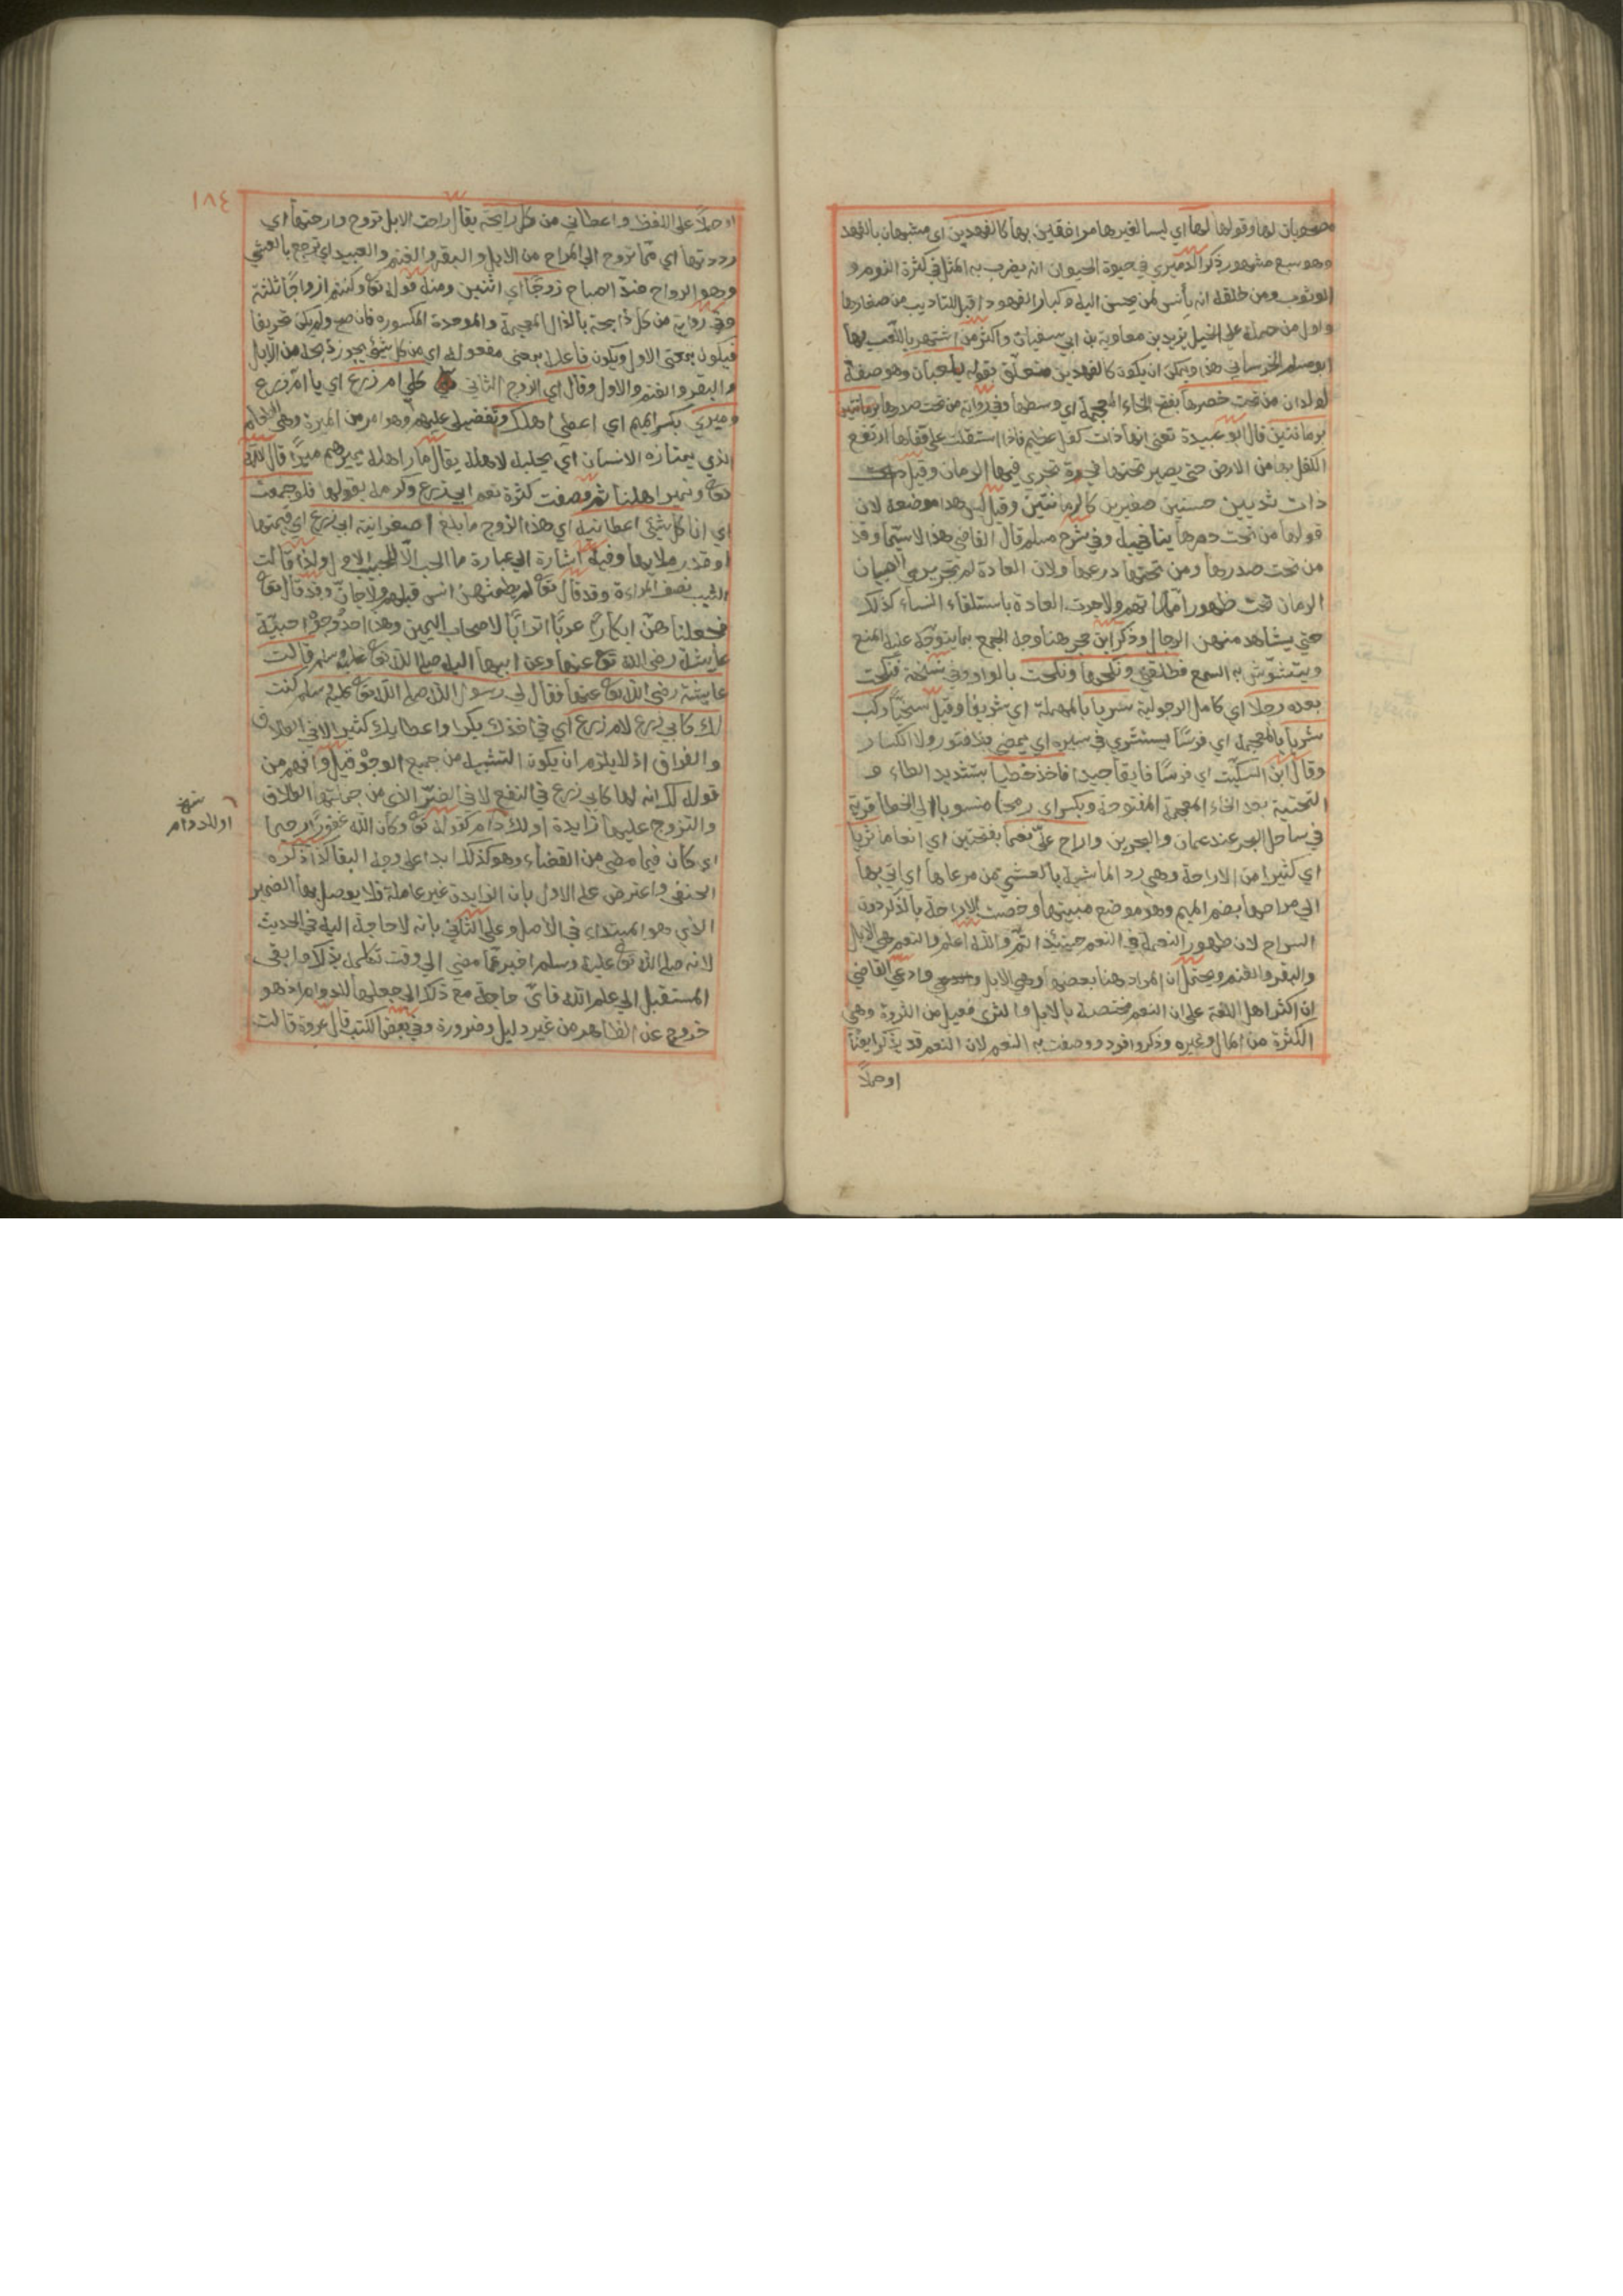 مصحوبان لها وقولها لها اي ليسا لغيرها موافقين بها كالفهدين اي مشبهان بالفهد
وهو سبع مشهور ذكر الدميري في حيوة الحيوان انه يضرب به المثل في كثرة النوم و
الوثوب ومن خلقه انه يأنس لمن يحسن اليه وكبار الفهود اقبل للتاديب من صغارها
واول من حمله على الخيل يزيد بن معاوية بن ابي سفيان واكثر من اشتهر باللعب بها
ابو مسلم الخرساني هذا ويمكن ان يكون كالفهدين متعلق بقوله يلعبان وهو صفة
لولدان من تحت خصرها بفتح الخاء المعجمة اي وسطها وفي رواية من تحت صدرها برمانتين
برمانتين قال ابو عبيدة تعني انها ذات كفل عظيم فاذا استقلت على قفاها ارتفع
الكفل بها من الارض حتى يصير تحتها فجوة تجري فيها الرمان وقيل
ذات ثديين حسنين صغيرين كالرمانتين وقيل ليس هذا موضعه لان
قولها من تحت درعها ينافيه وفي شرح مسلم قال القاضي هذا لا سيما وقد
من تحت صدرها ومن تحتها درعها ولان العادة لم تجر برمي الصبيان
الرمان تحت ظهور امهاتهم ولا جرت العادة باستلقاء النساء كذلك
حتى يشاهد منهن الرجال وذكر ابن حجر هنا وجه الجمع بما يتوجه عليه المنع
ويتشوش به السمع فطلقني ونكحها ونكحت بالواو وفي نسخة فنكحت
بعده رجلا اي كامل الرجولية سريا بالمهملة اي شريفا وقيل سخيا ركب
شريا بالمعجمة اي فرسا يستشري في سيره اي يمضي بلا فتور ولا انكسار
وقال ابن السكيت اي فرسا فايقا جيدا فاخذ خطيا بتشديد الطاء و
التحتية بعد الخاء المعجمة المفتوحة وبكسر اي رمحا منسوبا الى الخط قرية
في ساحل البحر عند عمان والبحرين واراح علي نعما بفتحتين اي انعاما ثريا
اي كثيرا من الاراحة وهي رد الماشية بالعشي من مرعاها اي اتى بها
الى مراحها بضم الميم وهو موضع مبيتها وخصت الاراحة بالذكر دون
السراح لان ظهور النعمة في النعم حينئذ اتم والله اعلم والنعم هي الابل
والبقر والغنم ويحتمل ان المراد هنا بعضها وهي الابل وادعى القاضي
ان اكثر اهل اللغة على ان النعم مختصة بالابل والثري فعيل من الثروة وهي
الكثرة من المال وغيره وذكر وافرد ووصفت به النعم لان النعم قد يذكر ايضا
او حملاً
١٨٤
او حملاً على اللفظ واعطاني من كل رايحة يقال راحت الابل تروح وارحتها اي
رددتها اي مما تروح الى المراح من الابل والبقر والغنم والعبيد اي ترجع بالعشي
وهو الرواح ضد الصباح زوجا اي اثنين ومنه قوله تع وكنتم ازواجا ثلثة
وفي رواية من كل ذابحة بالذال المعجمة والموحدة المكسورة فان صح ولم يكن تحريفا
فيكون بمعنى الاول ويكون فاعلة بمعنى مفعولة اي من كل شيء يجوز ذبحه من الابل
والبقر والغنم والاول وقال اي الزوج الثاني كلي ام زرع اي يا ام زرع
وميري بكسر الميم اي اعطي اهلك وتفضلي عليهم وهو امر من الميرة وهي الطعام
الذي يمتازه الانسان اي يجلبه لاهله يقال مار اهله يميرهم ميرا قال الله
تع ونمير اهلنا ثم وصفت كثرة نعم ابي زرع وكرمه بقولها فلو جمعت
اي انا كل شيء اعطانيه اي هذا الزوج ما بلغ اصغر انية ابي زرع اي قيمتها
او قدر ملايها وفيه اشارة الى عبارة ما الحب الا للحبيب الاول ولذا قالت
الثيب نصف المراءة وقد قال تع لم يطمثهن انس قبلهم ولا جان وقد قال تع
فجعلناهن ابكارا عربا اترابا لاصحاب اليمين وهذا احد وجوه احبية
عايشة رضي الله تع عنها وعن ابيها اليه صلى الله تع عليه وسلم قالت
عايشة رضي الله تع عنها فقال لي رسول الله صلى الله تع عليه وسلم كنت
لك كابي زرع لام زرع اي في اخذك بكرا واعطايك كثيرا لا في الطلاق
والفراق اذ لا يلزم ان يكون التشبيه من جميع الوجوه قيل وافهم من
قوله لك انه لها كابي زرع في النفع لا في الضر الذي من جملتها الطلاق
والتزوج عليها زايدة اولك دام كقوله تع وكان الله غفورا رحيما
اي كان فيما مضى من القضاء وهو كذلك ابدا على وجه البقا كذا ذكره
الحنفي واعترض على الاول بان الزايدة غير عاملة فلا يوصل بها الضمير
الذي هو المبتداء في الاصل وعلى الثاني بانه لا حاجة اليه في الحديث
لانه صلى الله تع عليه وسلم اخبر عما مضى الى وقت تكلمه بذلك وابقى
المستقبل الى علم الله فاي حاجة مع ذلك الى جعلها للدوام اذ هو
خروج عن الظاهر من غير دليل وضرورة وفي بعض الكتب قال عروة قالت
او للدوام